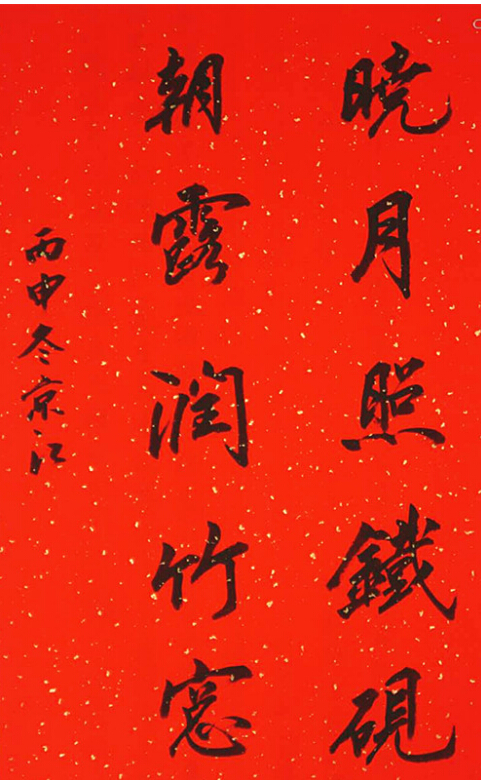 曉月照鐵硯
朝露潤竹窓
丙申冬京江